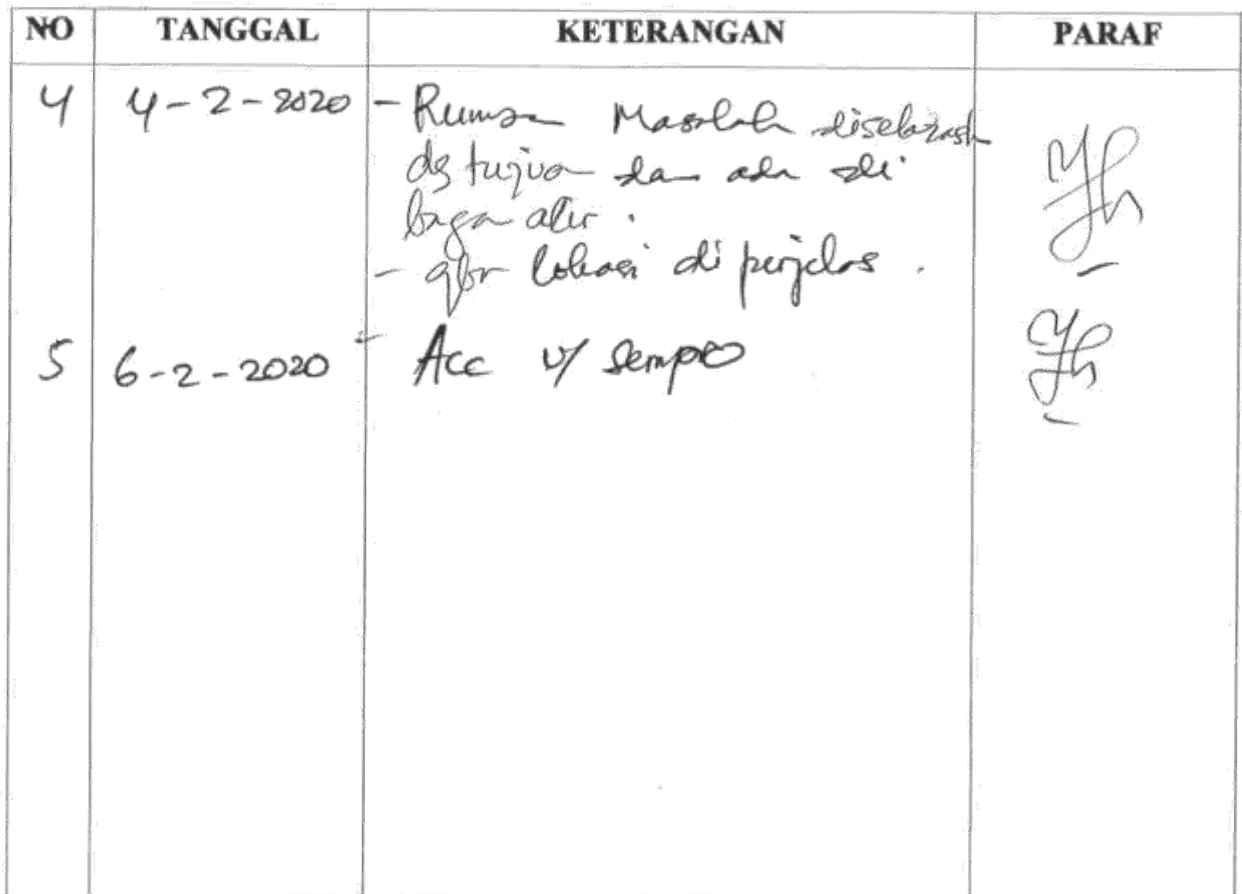 NO TANGGAL KETERANGAN PARAF
4 4-2-2020 - Rumsan Masalah diselarask
dg tujuan dan ada di
bagan alir.
- gbr lokasi di perjelas.
5 6-2-2020 - Acc u/ sempro